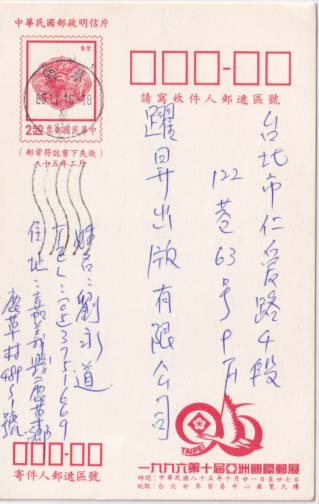 中華民國郵政明信片
中華民國郵票
2.50
(郵資符誌剪下失效)
請寫收件人郵遞區號
台北市仁愛路4段
122巷63号9F
躍昇出版有限公司
姓名:劉永道
住址:嘉義縣鹿草鄉
鹿草村
寄件人郵遞區號
TAIPEI
一九九六第十屆亞洲國際郵展
時間:中華民國八十五年十月廿一日至廿七日
地點:台北世界貿易中心展覽大樓